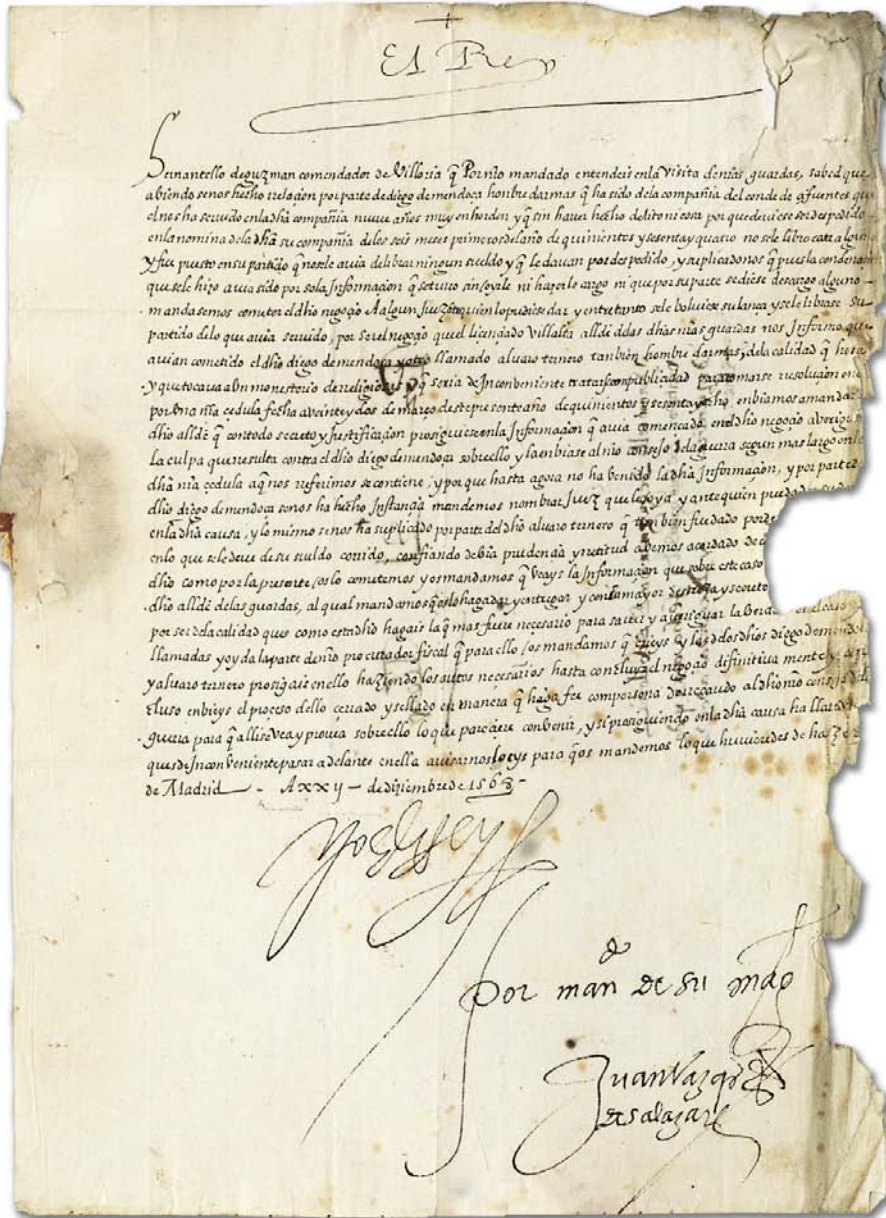 El Rey
Hernantello deguzman comendador de Villoria q̃ Por nr̃o mandado entendeis en la Visita de nr̃as guardas, sabed que
abiendosenos hecho relaçion por parte de diego de mendoça honbre darmas q̃ ha sido dela compañia del conde de çifuentes que
el nos ha seruido enla dha compañia nueue años muy en horden y q̃ sin hauer hecho delito ni cosa por que deuiese ser despedido
enla nomina dela dha su compañia delos seis meses primeros del año de quinientos y sesenta y quatro no sele libro cosa alguna
y fue puesto en su partido q̃ nosele auia de librar ningun sueldo y q̃ le dauan por despedido, y suplicadonos q̃ pues la condenaçion
que sele hizo auia sido por sola Informaçion q̃ setuuo sin oyrle ni hazerle cargo ni que por su parte se diese descargo alguno
mandasemos cometer el dho negoçio A algun Juez ante quien lo pudiese dar y entretanto sele boluiese su lança y sele librase su
partido delo que auia seruido, por ser el negoçio que el liçençiado Villalta allde delas dhas nr̃as guardas nos Informo que
auian cometido el dho diego de mendoça y otro llamado aluaro ternero tanbien hombre darmas, dela calidad q̃ hera
y que tocaua a Un monesterio de religiosas y q̃ seria de Inconueniente tratarse con publicidad para tomarse resoluçion en
por Una nr̃a çedula fecha a veinte y dos de março deste presente año de quinientos y sesenta y ocho, enbiamos a mandar
dho allde q̃ con todo secreto y Justificaçion prosiguiese en la Informaçion q̃ auia començada, en el dho negoçio aueriguase
La culpa que resulta contra el dho diego de mendoça sobre ello y la enbiase al nr̃o consejo dela guerra segun mas largo en la
dha nr̃a çedula a q̃ nos referimos se contiene, y por que hasta agora no ha venido la dha Informaçion, y por parte
dho diego de mendoça senos ha hecho Instançia mandemos nombrar Juez que le oya y ante quien pueda
enla dha causa, y lo mismo senos ha suplicado por parte del dho aluaro ternero q̃ tambien fue dado por
en lo que sele deue de su sueldo corrido, confiando de Vr̃a prudençia y retitud abemos acordado de
dho como por la presente os lo cometemos y os mandamos q̃ Veays la Informaçion que sobre este caso
dho allde delas guardas, al qual mandamos q̃ os lo haga dar y entregar y con la mayor destreza y secreto
por ser dela calidad que como esta dho hagais la q̃ mas fuere necesario para sauer y aueriguar la Verdad
llamadas y oyda la parte de nr̃o procurador fiscal q̃ para ello os mandamos q̃ y las delos dhos diego de mendoça
y aluaro ternero prosigais en ello haziendo los autos necesarios hasta concluyr el negoçio difinitiuamente
cluso enbieys el proceso dello çerrado y sellado en manera q̃ haga fee con persona de recaudo al dho nr̃o consejo de la
guerra para q̃ alli se vea y prouea sobre ello lo que pareçiere conuenir, y si prosiguiendo en la dha causa hallaredes
que es de Inconueniente pasar adelante en ella auisarnos loeys para q̃ os mandemos lo que huuieredes de hazer
de Madrid - A xxij - de diziembre de 1568 -
yo el Rey
Por mañ de su mag
de
Juan Vazquez
de salazar